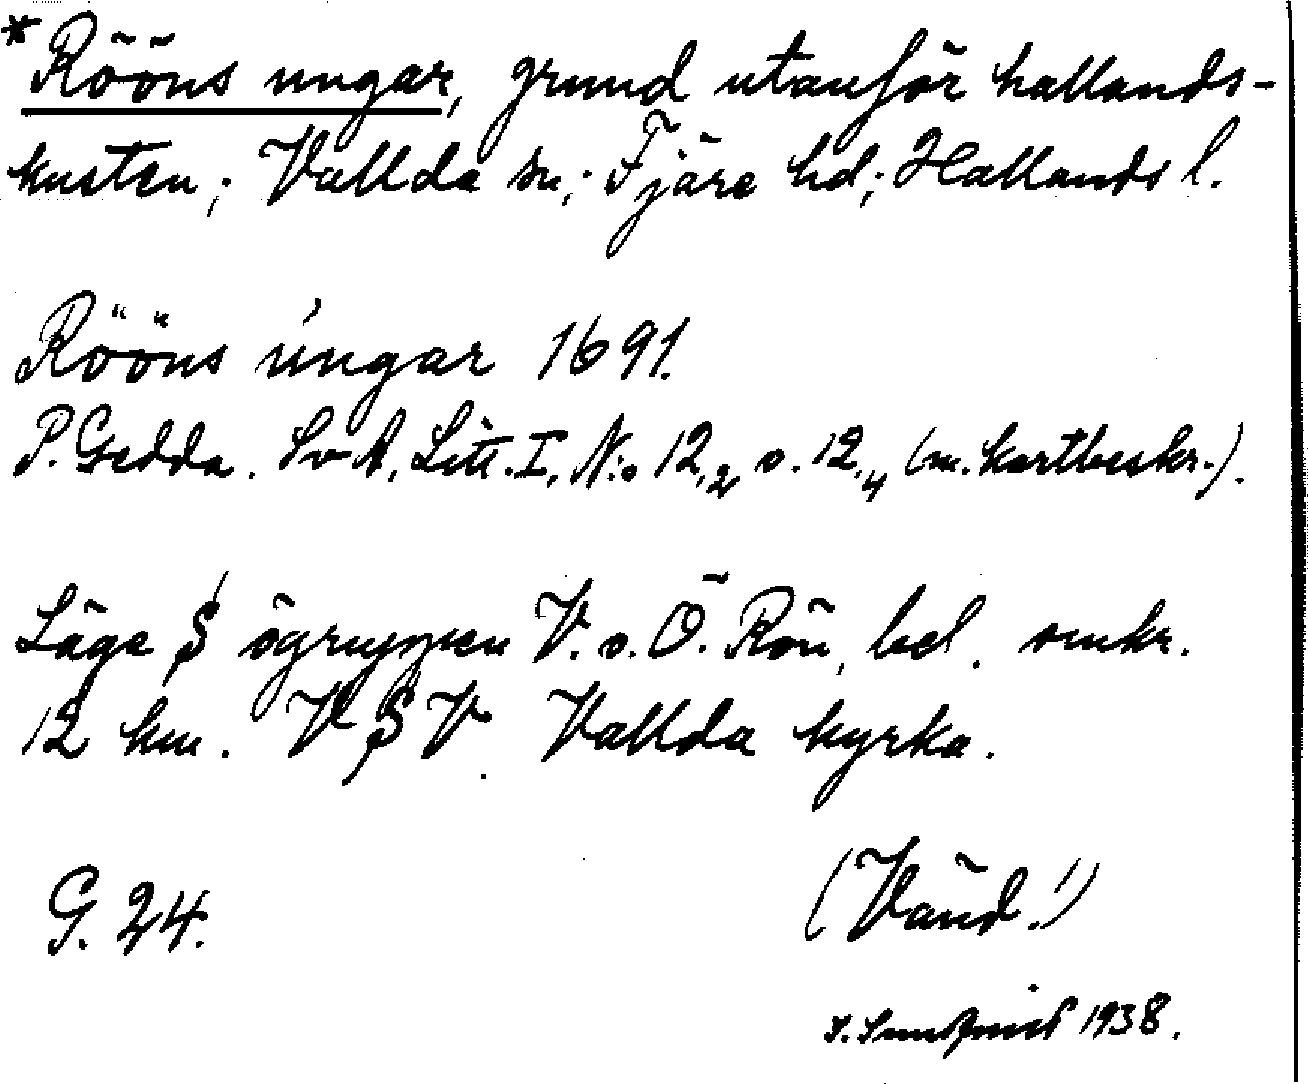 *Rööns ungar, grund utanför hallands-
kusten; Vallda sn; Fjäre hd; Hallands l.
Rööns úngar 1691.
P. Gedda. SvA, Litt. I, N:o 12,2 o. 12,4 (m. kartbeskr.).
Läge S ögruppen V. o. Ö. Rön, bel. omkr.
12 km. V S V. Vallda kyrka.
G. 24.
(Vänd!)
Sundqvist 1938.